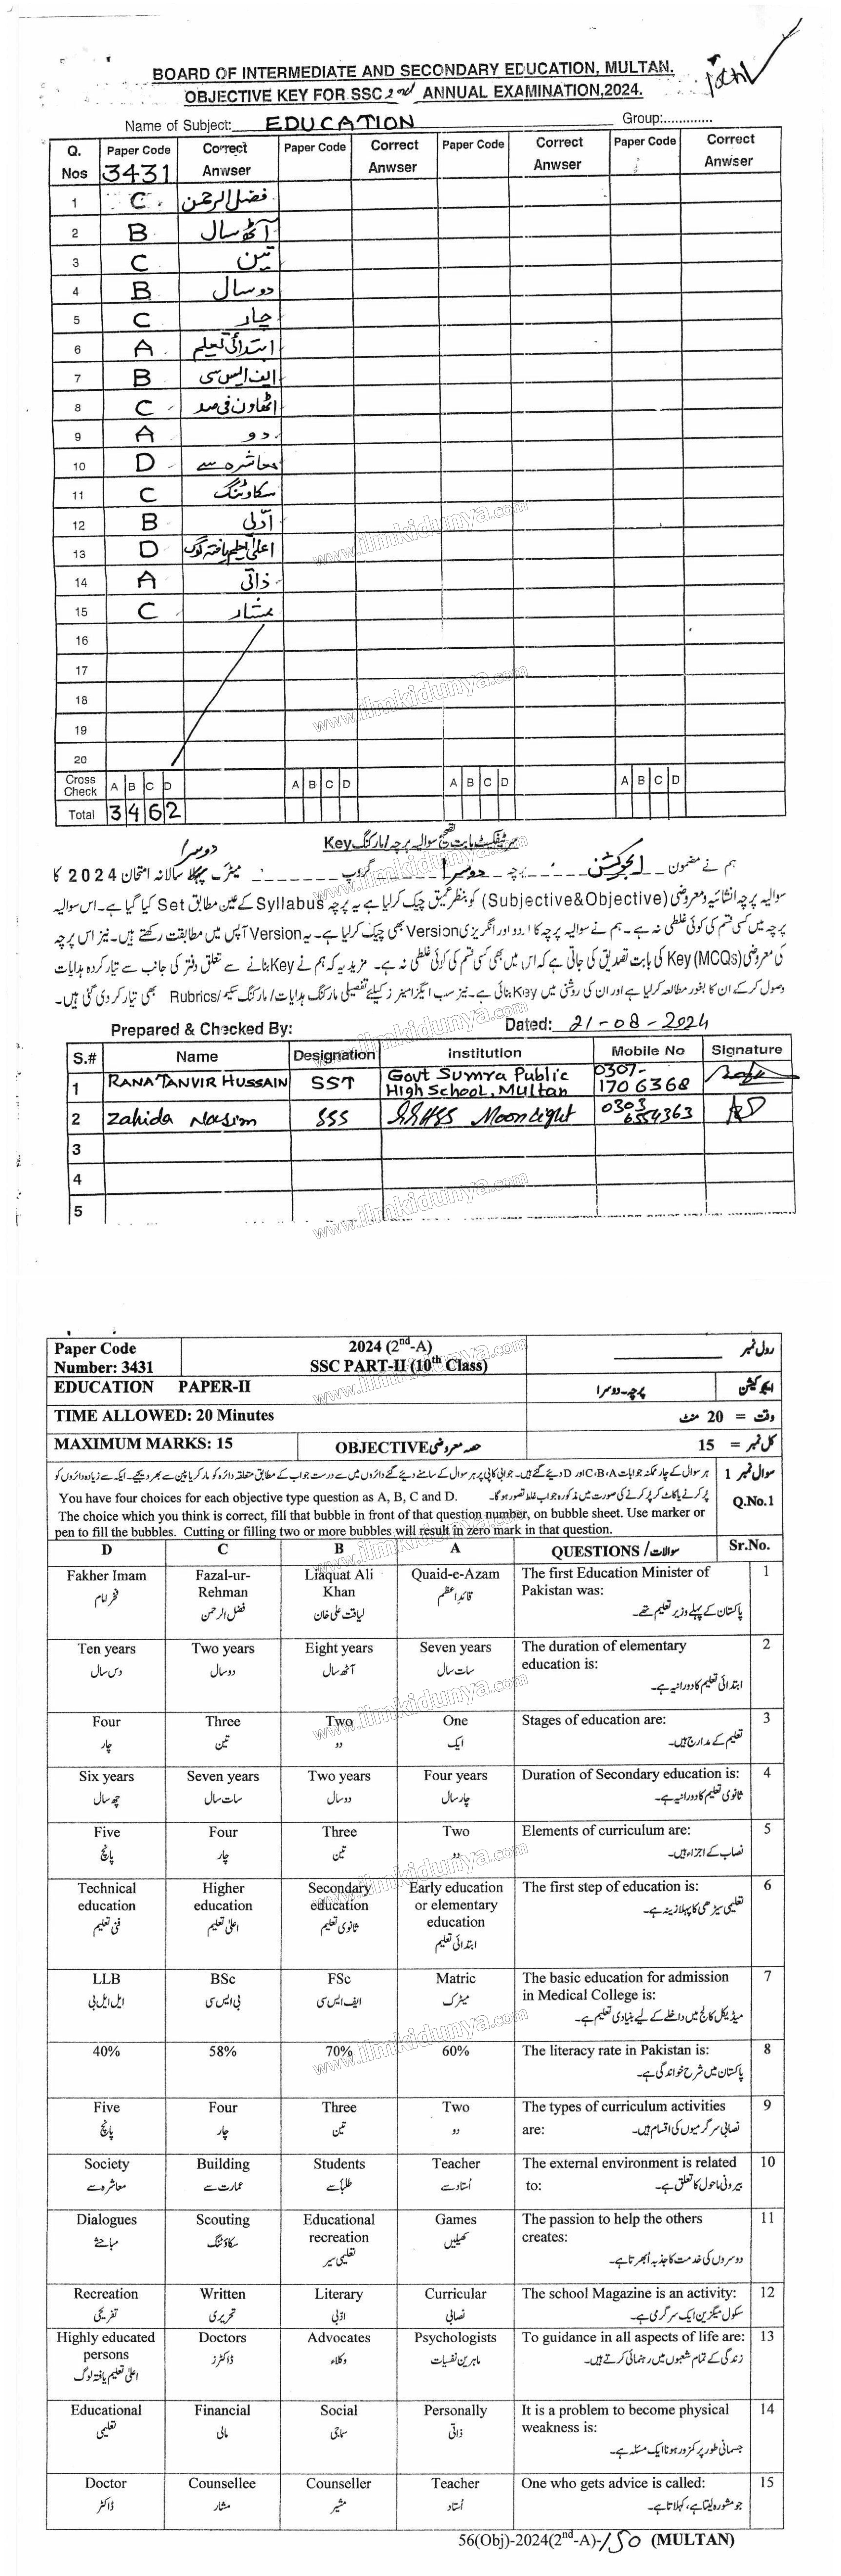 BOARD OF INTERMEDIATE AND SECONDARY EDUCATION, MULTAN.
OBJECTIVE KEY FOR SSC 2nd ANNUAL EXAMINATION,2024.
Name of Subject: EDUCATION Group:.............
Q. Nos Paper Code 3431 Correct Anwser Paper Code Correct Anwser Paper Code Correct Anwser Paper Code Correct Anwser
1 C فضل الرحمن
2 B آٹھ سال
3 C تین
4 B دو سال
5 C چار
6 A ابتدائی تعلیم
7 B ایف ایس سی
8 C اٹھاون فی صد
9 A دو
10 D معاشرہ سے
11 C سکاؤٹنگ
12 B ادّبی
13 D اعلیٰ تعلیم یافتہ لوگ
14 A ذاتی
15 C مشار
16
17
18
19
20
Cross Check A B C D A B C D A B C D A B C D
Total 3 4 6 2
سرٹیفکیٹ بابت تصحیح سوالیہ پرچہ/مارکنگ Key
ہم نے مضمون ایجوکیشن پرچہ دوسرا گروپ میٹرک پہلا دوسرا سالانہ امتحان 2024 کا
سوالیہ پرچہ انشائیہ ومعروضی (Subjective&Objective) کو بنظر عمیق چیک کرلیا ہے یہ پرچہ Syllabus کے عین مطابق Set کیا گیا ہے۔ اس سوالیہ
پرچہ میں کسی قسم کی کوئی غلطی نہ ہے۔ ہم نے سوالیہ پرچہ کا اردو اور انگریزی Version بھی چیک کرلیا ہے۔ یہ Version آپس میں مطابقت رکھتے ہیں۔ نیز اس پرچہ
کی معروضی Key (MCQs) کی بابت تصدیق کی جاتی ہے کہ اس میں بھی کسی قسم کی کوئی غلطی نہ ہے۔ مزید یہ کہ ہم نے Key بنانے سے متعلق دفتر کی جانب سے تیار کردہ ہدایات
وصول کرکے ان کا بغور مطالعہ کرلیا ہے اور ان کی روشنی میں Key بنائی ہے۔ نیز سب ایگزامینرز کیلئے تفصیلی مارکنگ ہدایات/مارکنگ سکیم/Rubrics بھی تیار کردی گئی ہیں۔
Prepared & Checked By: Dated: 21-08-2024
S.# Name Designation Institution Mobile No Signature
1 RANA TANVIR HUSSAIN SST Govt Sumra Public High School, Multan 0307-1706368
2 Zahida Nasim SSS Moonlight 0303 6554363
3
4
5
www.ilmkidunya.com
Paper Code Number: 3431 2024 (2nd-A) SSC PART-II (10th Class) رول نمبر
EDUCATION PAPER-II پرچہ۔دوسرا ایجوکیشن
TIME ALLOWED: 20 Minutes وقت = 20 منٹ
MAXIMUM MARKS: 15 OBJECTIVE حصہ معروضی کل نمبر = 15
سوال نمبر 1 ہر سوال کے چار ممکنہ جوابات A،B،C اور D دیئے گئے ہیں۔ جوابی کاپی پر ہر سوال کے سامنے دیئے گئے دائروں میں سے درست جواب کے مطابق متعلقہ دائرہ کو مارکر یا پین سے بھر دیجیے۔ ایک سے زیادہ دائروں کو
Q.No.1 پُر کرنے یا کاٹ کر پُر کرنے کی صورت میں مذکورہ جواب غلط تصور ہوگا۔
You have four choices for each objective type question as A, B, C and D.
The choice which you think is correct, fill that bubble in front of that question number, on bubble sheet. Use marker or
pen to fill the bubbles. Cutting or filling two or more bubbles will result in zero mark in that question.
D C B A QUESTIONS / سوالات Sr.No.
Fakher Imam Fazal-ur-Rehman Liaquat Ali Khan Quaid-e-Azam The first Education Minister of Pakistan was: 1
فخر امام فضل الرحمن لیاقت علی خان قائداعظم پاکستان کے پہلے وزیر تعلیم تھے۔
Ten years Two years Eight years Seven years The duration of elementary education is: 2
دس سال دو سال آٹھ سال سات سال ابتدائی تعلیم کا دورانیہ ہے۔
Four Three Two One Stages of education are: 3
چار تین دو ایک تعلیم کے مدارج ہیں۔
Six years Seven years Two years Four years Duration of Secondary education is: 4
چھ سال سات سال دو سال چار سال ثانوی تعلیم کا دورانیہ ہے۔
Five Four Three Two Elements of curriculum are: 5
پانچ چار تین دو نصاب کے اجزاء ہیں۔
Technical education Higher education Secondary education Early education or elementary education The first step of education is: 6
فنی تعلیم اعلیٰ تعلیم ثانوی تعلیم ابتدائی تعلیم تعلیمی سیڑھی کا پہلا زینہ ہے۔
LLB BSc FSc Matric The basic education for admission in Medical College is: 7
ایل ایل بی بی ایس سی ایف ایس سی میٹرک میڈیکل کالج میں داخلے کے لیے بنیادی تعلیم ہے۔
40% 58% 70% 60% The literacy rate in Pakistan is: 8
پاکستان میں شرح خواندگی ہے۔
Five Four Three Two The types of curriculum activities are: 9
پانچ چار تین دو نصابی سرگرمیوں کی اقسام ہیں۔
Society Building Students Teacher The external environment is related to: 10
معاشرہ سے عمارت سے طلباء سے اُستاد سے بیرونی ماحول کا تعلق ہے۔
Dialogues Scouting Educational recreation Games The passion to help the others creates: 11
مباحثے سکاؤٹنگ تعلیمی سیر کھیلیں دوسروں کی خدمت کا جذبہ اُبھرتا ہے۔
Recreation Written Literary Curricular The school Magazine is an activity: 12
تفریحی تحریری ادّبی نصابی سکول میگزین ایک سرگرمی ہے۔
Highly educated persons Doctors Advocates Psychologists To guidance in all aspects of life are: 13
اعلیٰ تعلیم یافتہ لوگ ڈاکٹرز وکلاء ماہرین نفسیات زندگی کے تمام شعبوں میں رہنمائی کرتے ہیں۔
Educational Financial Social Personally It is a problem to become physical weakness is: 14
تعلیمی مالی سماجی ذاتی جسمانی طور پر کمزور ہونا ایک مسئلہ ہے۔
Doctor Counsellee Counseller Teacher One who gets advice is called: 15
ڈاکٹر مشار مشیر اُستاد جو مشورہ لیتا ہے، کہلاتا ہے۔
56(Obj)-2024(2nd-A)-150 (MULTAN)